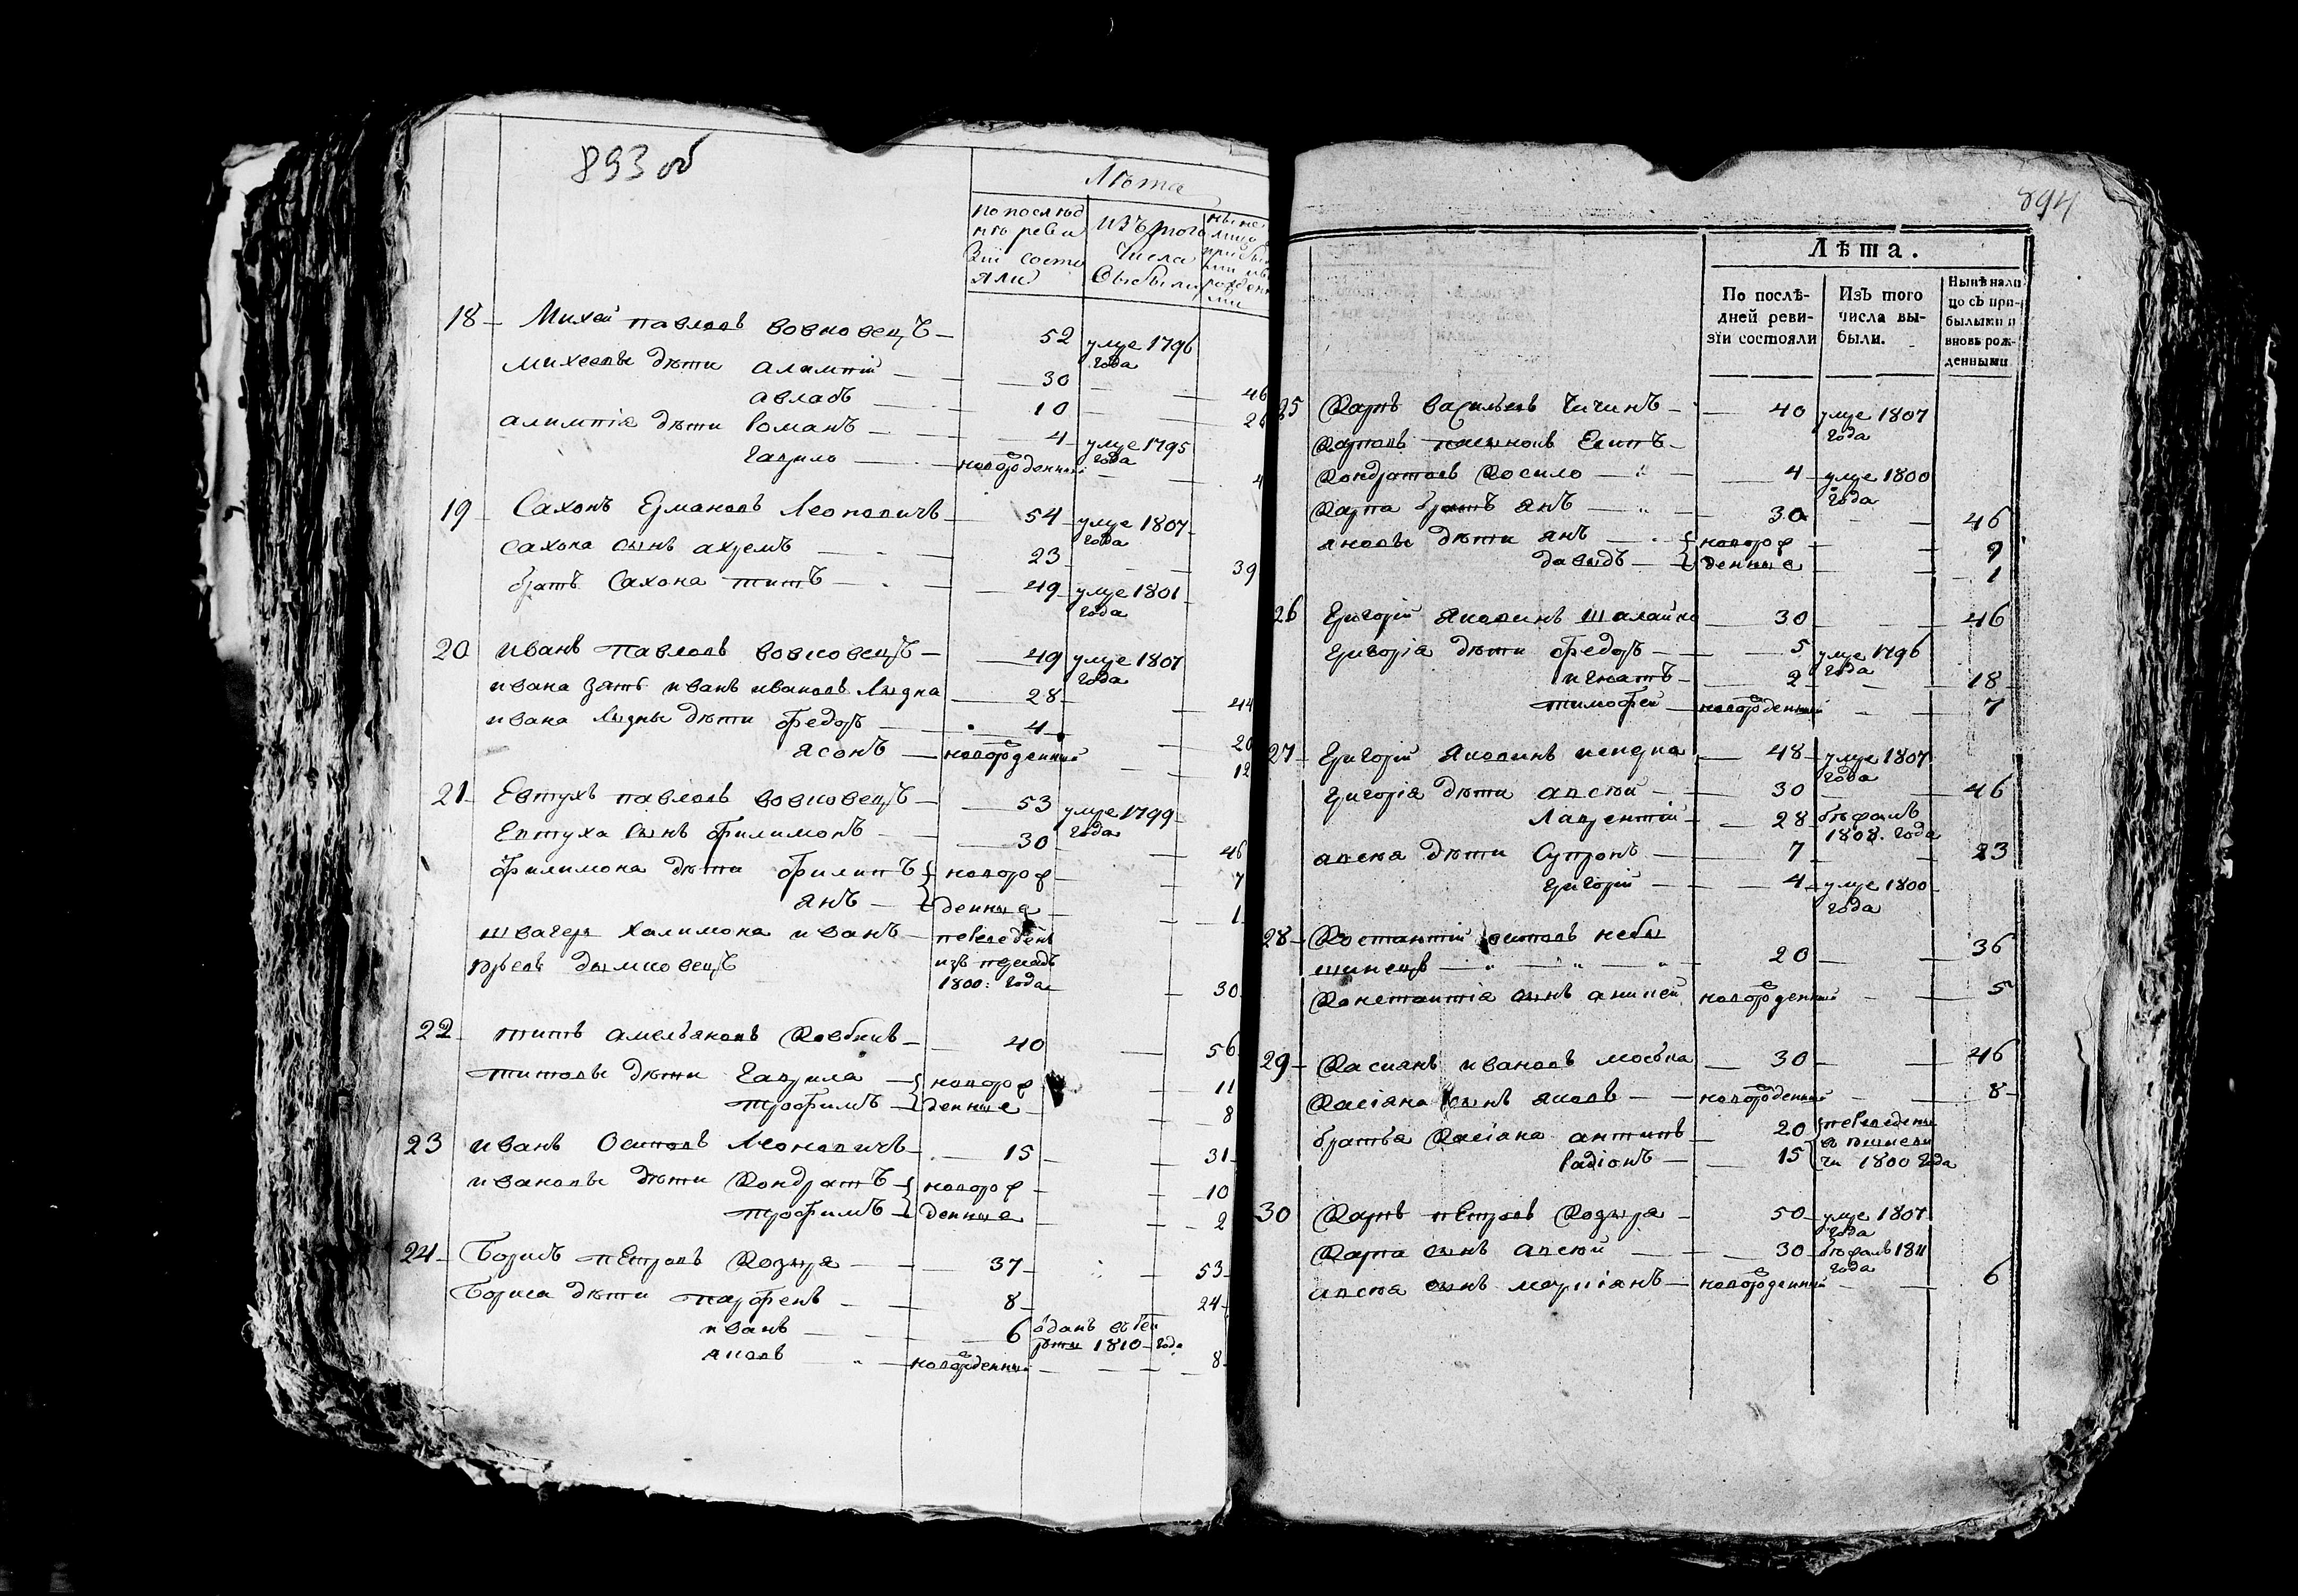 893 об
Лѣта
по послѣд
нѣ реви
зіи состо
яли
изъ того
числа
выбыли
18 Михей павловъ вовковецъ 52 умре 1796
года
михеевы дѣти алимпій 30 46
авласъ 10 26
алимпія дѣти романъ 4 умре 1795
года
гаврило новорожденный 4
19 Сахонъ Ермаковъ Леоновичъ 54 умре 1807
года
сахона сынъ ахремъ 23 39
братъ Сахона титъ 49 умре 1801
года
20 иванъ павловъ вовковецъ 49 умре 1807
года
ивана зять иванъ ивановъ 28 44
ивана дѣти федоръ 4 20
ясонъ новорожденный 12
21 Евтухъ павловъ вовковецъ 53 умре 1799
года
Евтуха сынъ филимонъ 30 46
филимона дѣти филипъ новорож 7
янъ денные 1
швагеръ халимона иванъ переведенъ
1800: года 30
22 титъ амельяновъ 40 56
титовы дѣти гаврила новорож 11
трофимъ денные 8
23 иванъ Осиповъ Леоновичъ 15 31
ивановы дѣти Кондратъ новорож 10
трофимъ денные 2
24 Борисъ петровъ Козыра 37 53
Бориса дѣти парфенъ 8 24
иванъ 6 одань въ рек
руты 1810 года
яковъ новорожденный 8
894
Лѣта.
По послѣ-
дней реви-
зіи состояли
Изъ того
числа вы-
были.
Нынѣ нали
цо съ при-
былыми и
вновь рож-
денными
25 Карпъ васильевъ Чичинъ 40 умре 1807
года
Карповъ пасынокъ Есипъ
Кондратовъ Косило 4 умре 1800
года
Карпа братъ янъ 30 46
яновы дѣти янъ новорож 9
давыдъ денные 1
26 Григорій яковинъ 30 46
григорія дѣти федоръ 5 умре 1796
года
игнатъ 2 18
тимофей новорожденный 7
27 Григорій яковинъ 48 умре 1807
года
григорія дѣти авсей 30 46
Лаврентій 28 бѣжалъ
1808. года
авсея дѣти Супронъ 7 23
григорій 4 умре 1800
года
28 Костантій осиповъ небы
шинецъ 20 36
Константія сынъ аникей новорожденный 5
29 Касиянъ ивановъ моська 30 46
Касіяна сынъ яковъ новорожденный 8
братья Касіяна антипъ 20 переведены
радіонъ 15 1800 года
30 Карпъ петровъ Козыра 50 умре 1807
года
Карпа сынъ авсей 30 бѣжалъ 1811
года
авсея сынъ марціянъ новорожденный 6